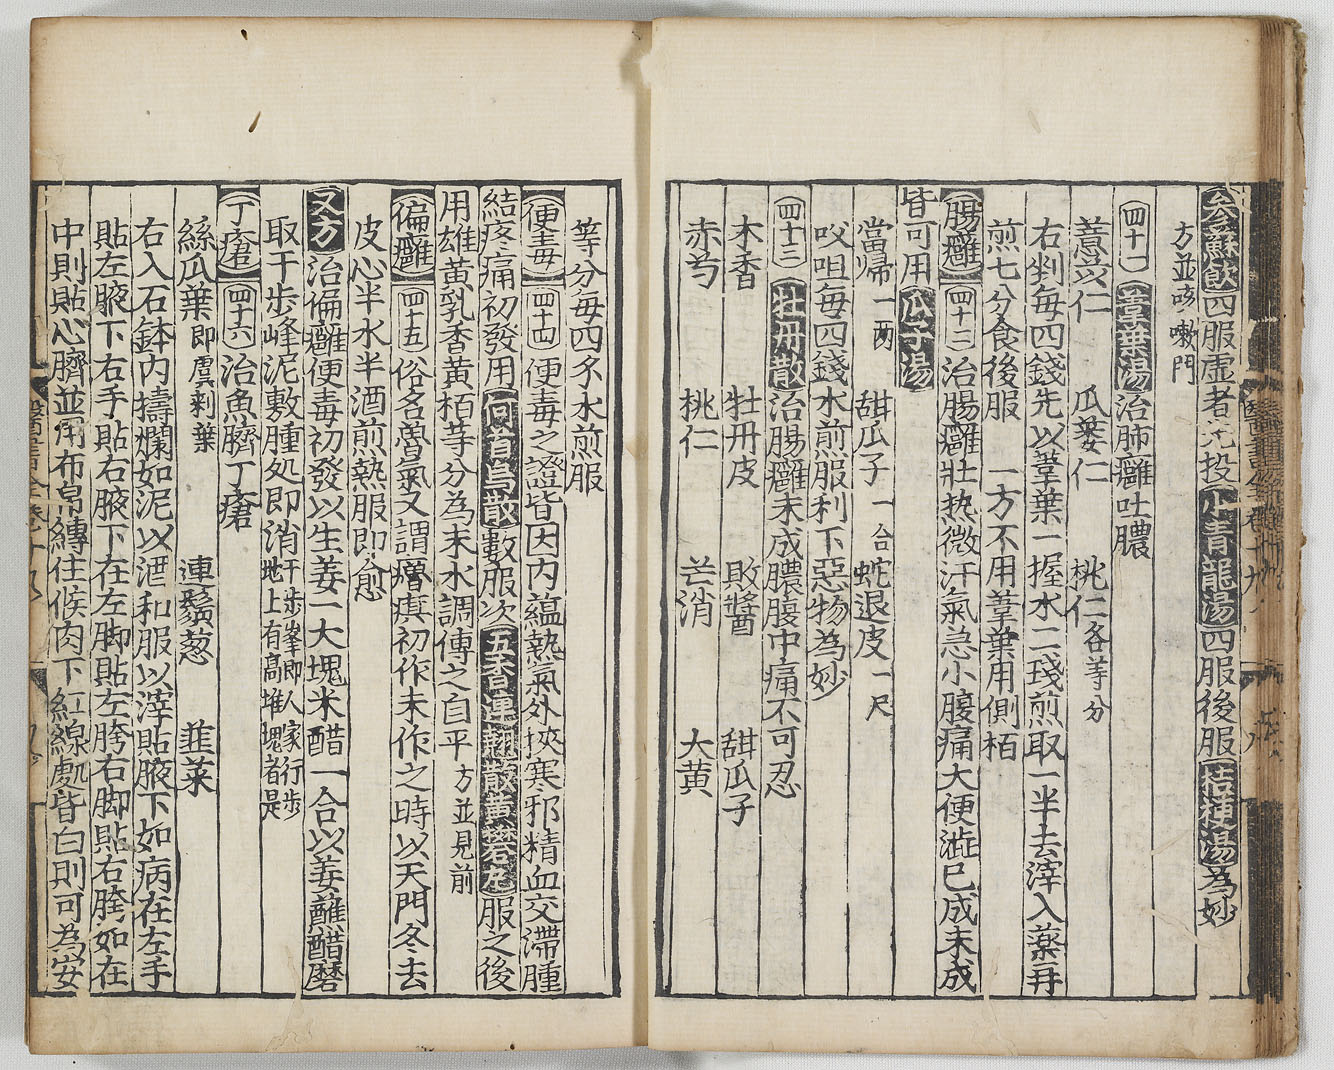 參蘇飲四服虛者先投小青龍湯四服後服桔梗湯為妙
方並咳嗽門
四十一 葦葉湯治肺癰吐膿
薏苡仁 瓜蔞仁 桃仁各等分
右剉每四錢先以葦葉一握水二琖煎取一半去滓入藥再
煎七分食後服 一方不用葦葉用側栢
腸癰 四十二 治腸癰壯热微汗氣急小腹痛大便澁已成未成
皆可用瓜子湯
當歸一两 甜瓜子一合 蛇退皮一尺
㕮咀每四錢水煎服利下惡物為妙
四十三 牡丹散治腸癰未成膿腹中痛不可忍
木香 牡丹皮 敗醬 甜瓜子
赤芍 桃仁 芒消 大黄
等分每四夕水煎服
便毒 四十四 便毒之證皆因内蘊熱氣外挾寒邪精血交滯腫
結疼痛初發用何首烏散數服次五香連翹散黄礬丸服之後
用雄黄乳香黄栢等分為末水調傅之自平方並見前
偏癰 四十五 俗名魯氣又謂 初作未作之時以天門冬去
皮心半水半酒煎熱服即愈
又方治偏癰便毒初發以生姜一大塊米醋一合以姜蘸醋磨
取千步峰泥敷腫処即消千步峯即人家行步地上有高堆塊者是
丁瘡 四十六 治魚臍丁瘡
絲瓜葉即虞刺葉 連鬚葱 韮菜
右入石鉢内擣爛如泥以酒和服以滓貼腋下如病在左手
貼左腋下右手貼右腋下在左脚貼左胯右脚貼右胯如在
中則貼心臍並用布帛縳住候肉下紅線處皆白則可為安